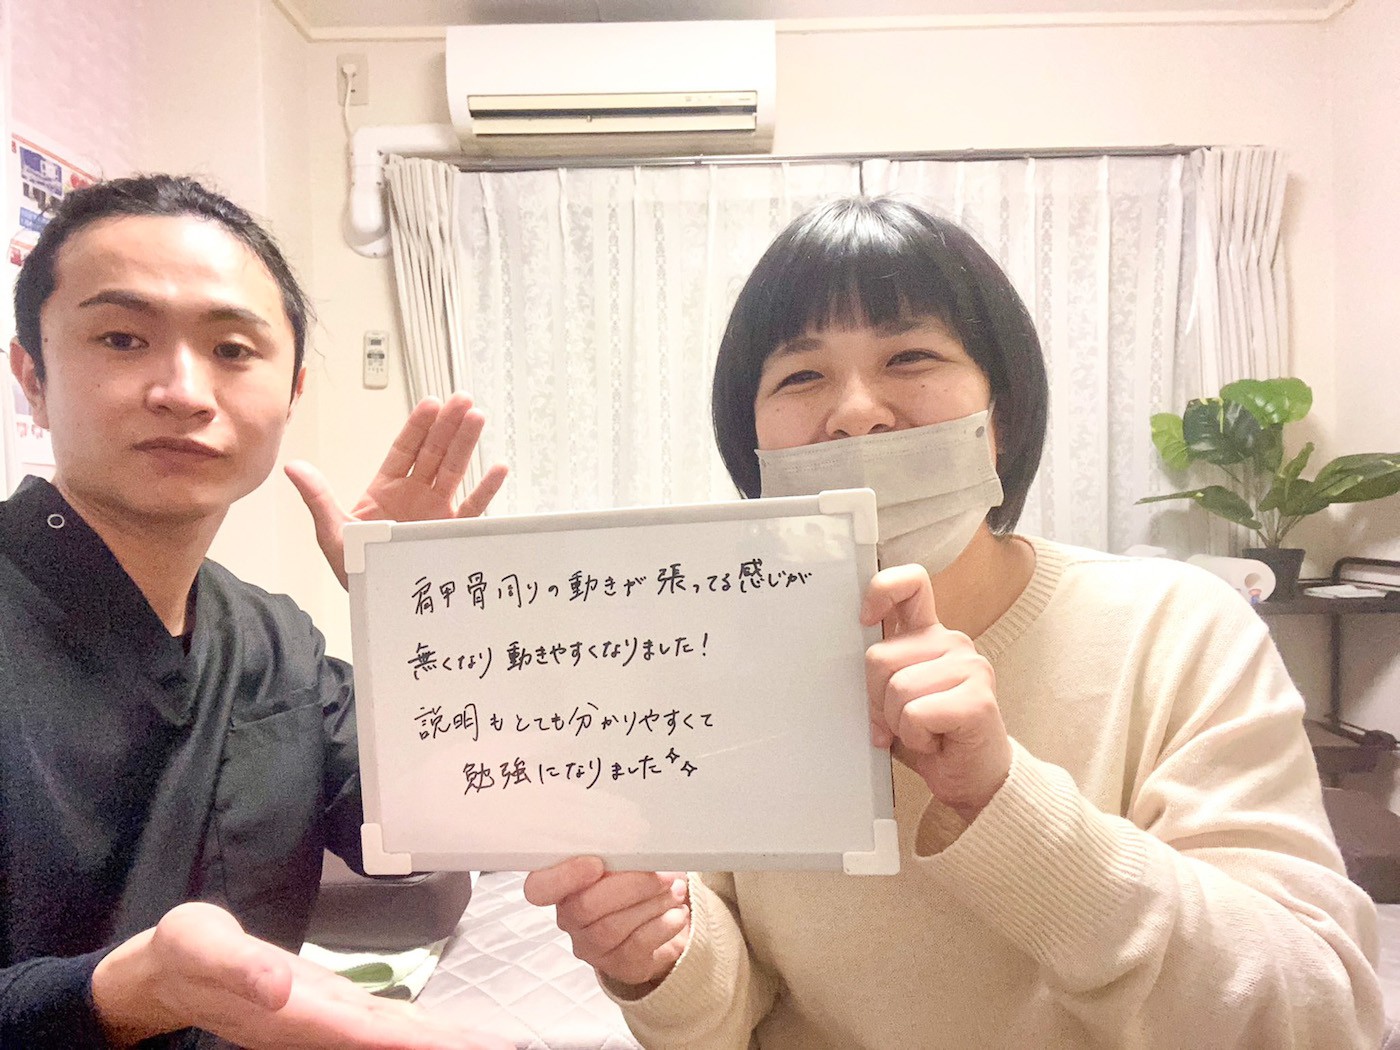 肩甲骨周りの動きが張ってる感じが
無くなり動きやすくなりました！
説明もとても分かりやすくて
勉強になりました